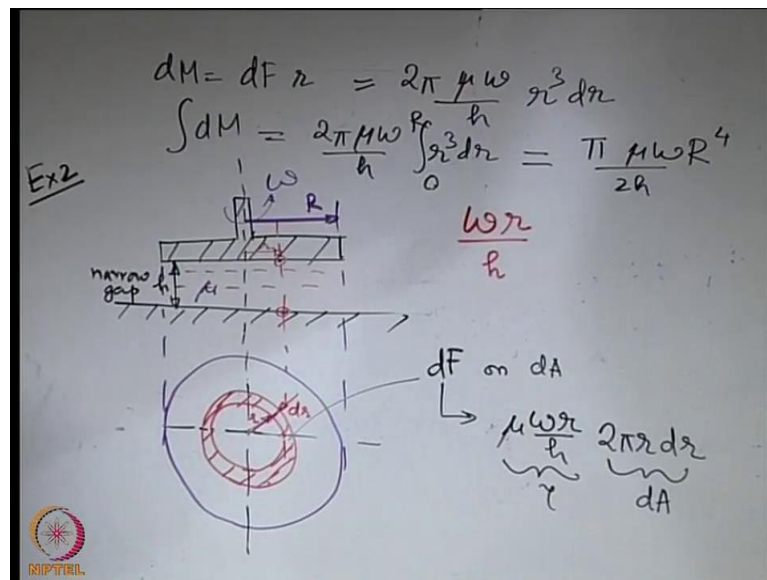 dM = dF r = 2π μω/h r³dr
∫dM = 2πμω/h ∫₀ᴿ r³dr = π μωR⁴/2h
Ex 2
ω
R
ωr/h
narrow gap h
μ
r
dr
dF on dA
μ ωr/h 2πr dr
τ dA
NPTEL